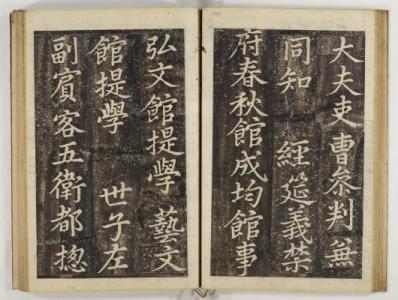 大夫吏曹叅判無
同知 經筵義禁
府春秋館成均館事
弘文館提學 藝文
館提學 世子左
副賓客五衛都摠